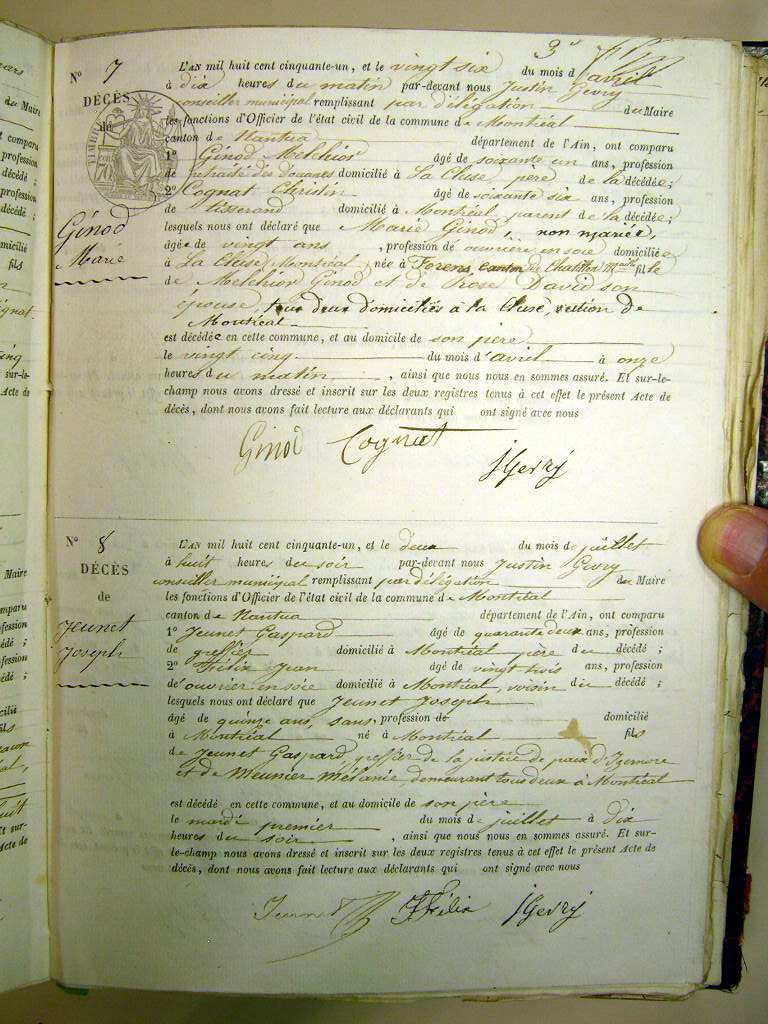 3e
N° 7
DÉCÈS
de
Ginod
Marie
L'AN mil huit cent cinquante-un, et le vingt six du mois d'avril
à dix heures du matin par-devant nous Justin Gevry
conseiller municipal remplissant par délégation du Maire
les fonctions d'Officier de l'état civil de la commune de Montréal
canton de Nantua département de l'Ain, ont comparu
1° Ginod Melchior âgé de soixante un ans, profession
de retraité des Douanes domicilié à La Cluse père de la décédée;
2° Cognat Christin âgé de soixante six ans, profession
de tisserand domicilié à Montréal, parent de la décédée;
lesquels nous ont déclaré que Marie Ginod, non mariée,
âgée de vingt ans, profession de ouvrière en soie domiciliée
à La Cluse Montréal, née à Forens, canton de Chatillon fille
de Melchior Ginod et de Rose David son
épouse, tous deux domiciliés à la Cluse, section de
Montréal
est décédée en cette commune, et au domicile de son père
le vingt cinq du mois d'avril à onze
heures du matin, ainsi que nous nous en sommes assuré. Et sur-le-
champ nous avons dressé et inscrit sur les deux registres tenus à cet effet le présent Acte de
décès, dont nous avons fait lecture aux déclarants qui ont signé avec nous
Ginod Cognat JGevry
N° 8
DÉCÈS
de
Jeunet
Joseph
L'AN mil huit cent cinquante-un, et le deux du mois de juillet
à huit heures du soir par-devant nous Justin Gevry
conseiller municipal remplissant par délégation du Maire
les fonctions d'Officier de l'état civil de la commune de Montréal
canton de Nantua département de l'Ain, ont comparu
1° Jeunet Gaspard âgé de quarante deux ans, profession
de greffier domicilié à Montréal père du décédé;
2° Félix Jean âgé de vingt trois ans, profession
de ouvrier en soie domicilié à Montréal, voisin du décédé;
lesquels nous ont déclaré que Jeunet Joseph
âgé de quinze ans, sans profession de domicilié
à Montréal né à Montréal fils
de Jeunet Gaspard, greffier de la justice de paix d'Izernore
et de Meunier Mélanie, demeurant tous deux à Montréal
est décédé en cette commune, et au domicile de son père
le mardi premier du mois de juillet à dix
heures du soir, ainsi que nous nous en sommes assuré. Et sur-
le-champ nous avons dressé et inscrit sur les deux registres tenus à cet effet le présent Acte de
décès, dont nous avons fait lecture aux déclarants qui ont signé avec nous
Jeunet JFélix JGevry